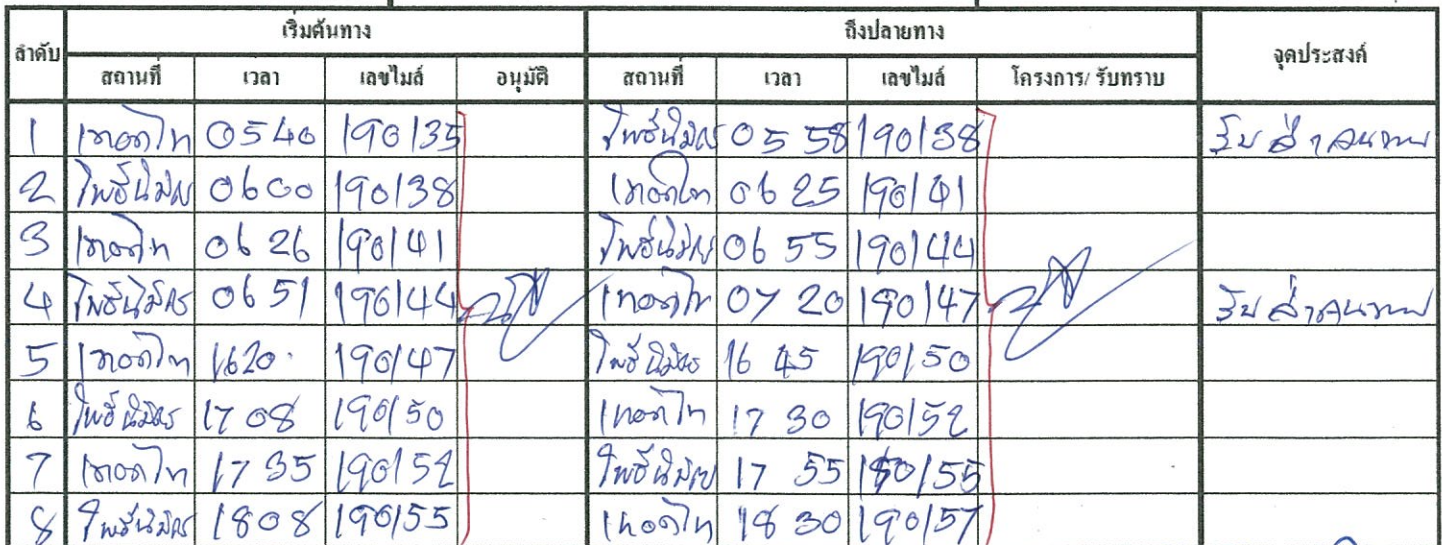 ลำดับ เริ่มต้นทาง ถึงปลายทาง จุดประสงค์
สถานที่ เวลา เลขไมล์ อนุมัติ สถานที่ เวลา เลขไมล์ โครงการ/ รับทราบ
1 เทอดไท 0540 190135 โพธิ์นิมิตร 05 58 190138 รับส่ง
2 โพธิ์นิมิตร 0600 190138 เทอดไท 06 25 190141
3 เทอดไท 06 26 190141 โพธิ์นิมิตร 06 55 190144
4 โพธิ์นิมิตร 06 51 190144 เทอดไท 07 20 190147 รับส่ง
5 เทอดไท 1620 190147 โพธิ์นิมิตร 16 45 190150
6 โพธิ์นิมิตร 17 08 190150 เทอดไท 17 30 190152
7 เทอดไท 17 35 190152 โพธิ์นิมิตร 17 55 190155
8 โพธิ์นิมิตร 1808 190155 เทอดไท 18 30 190157